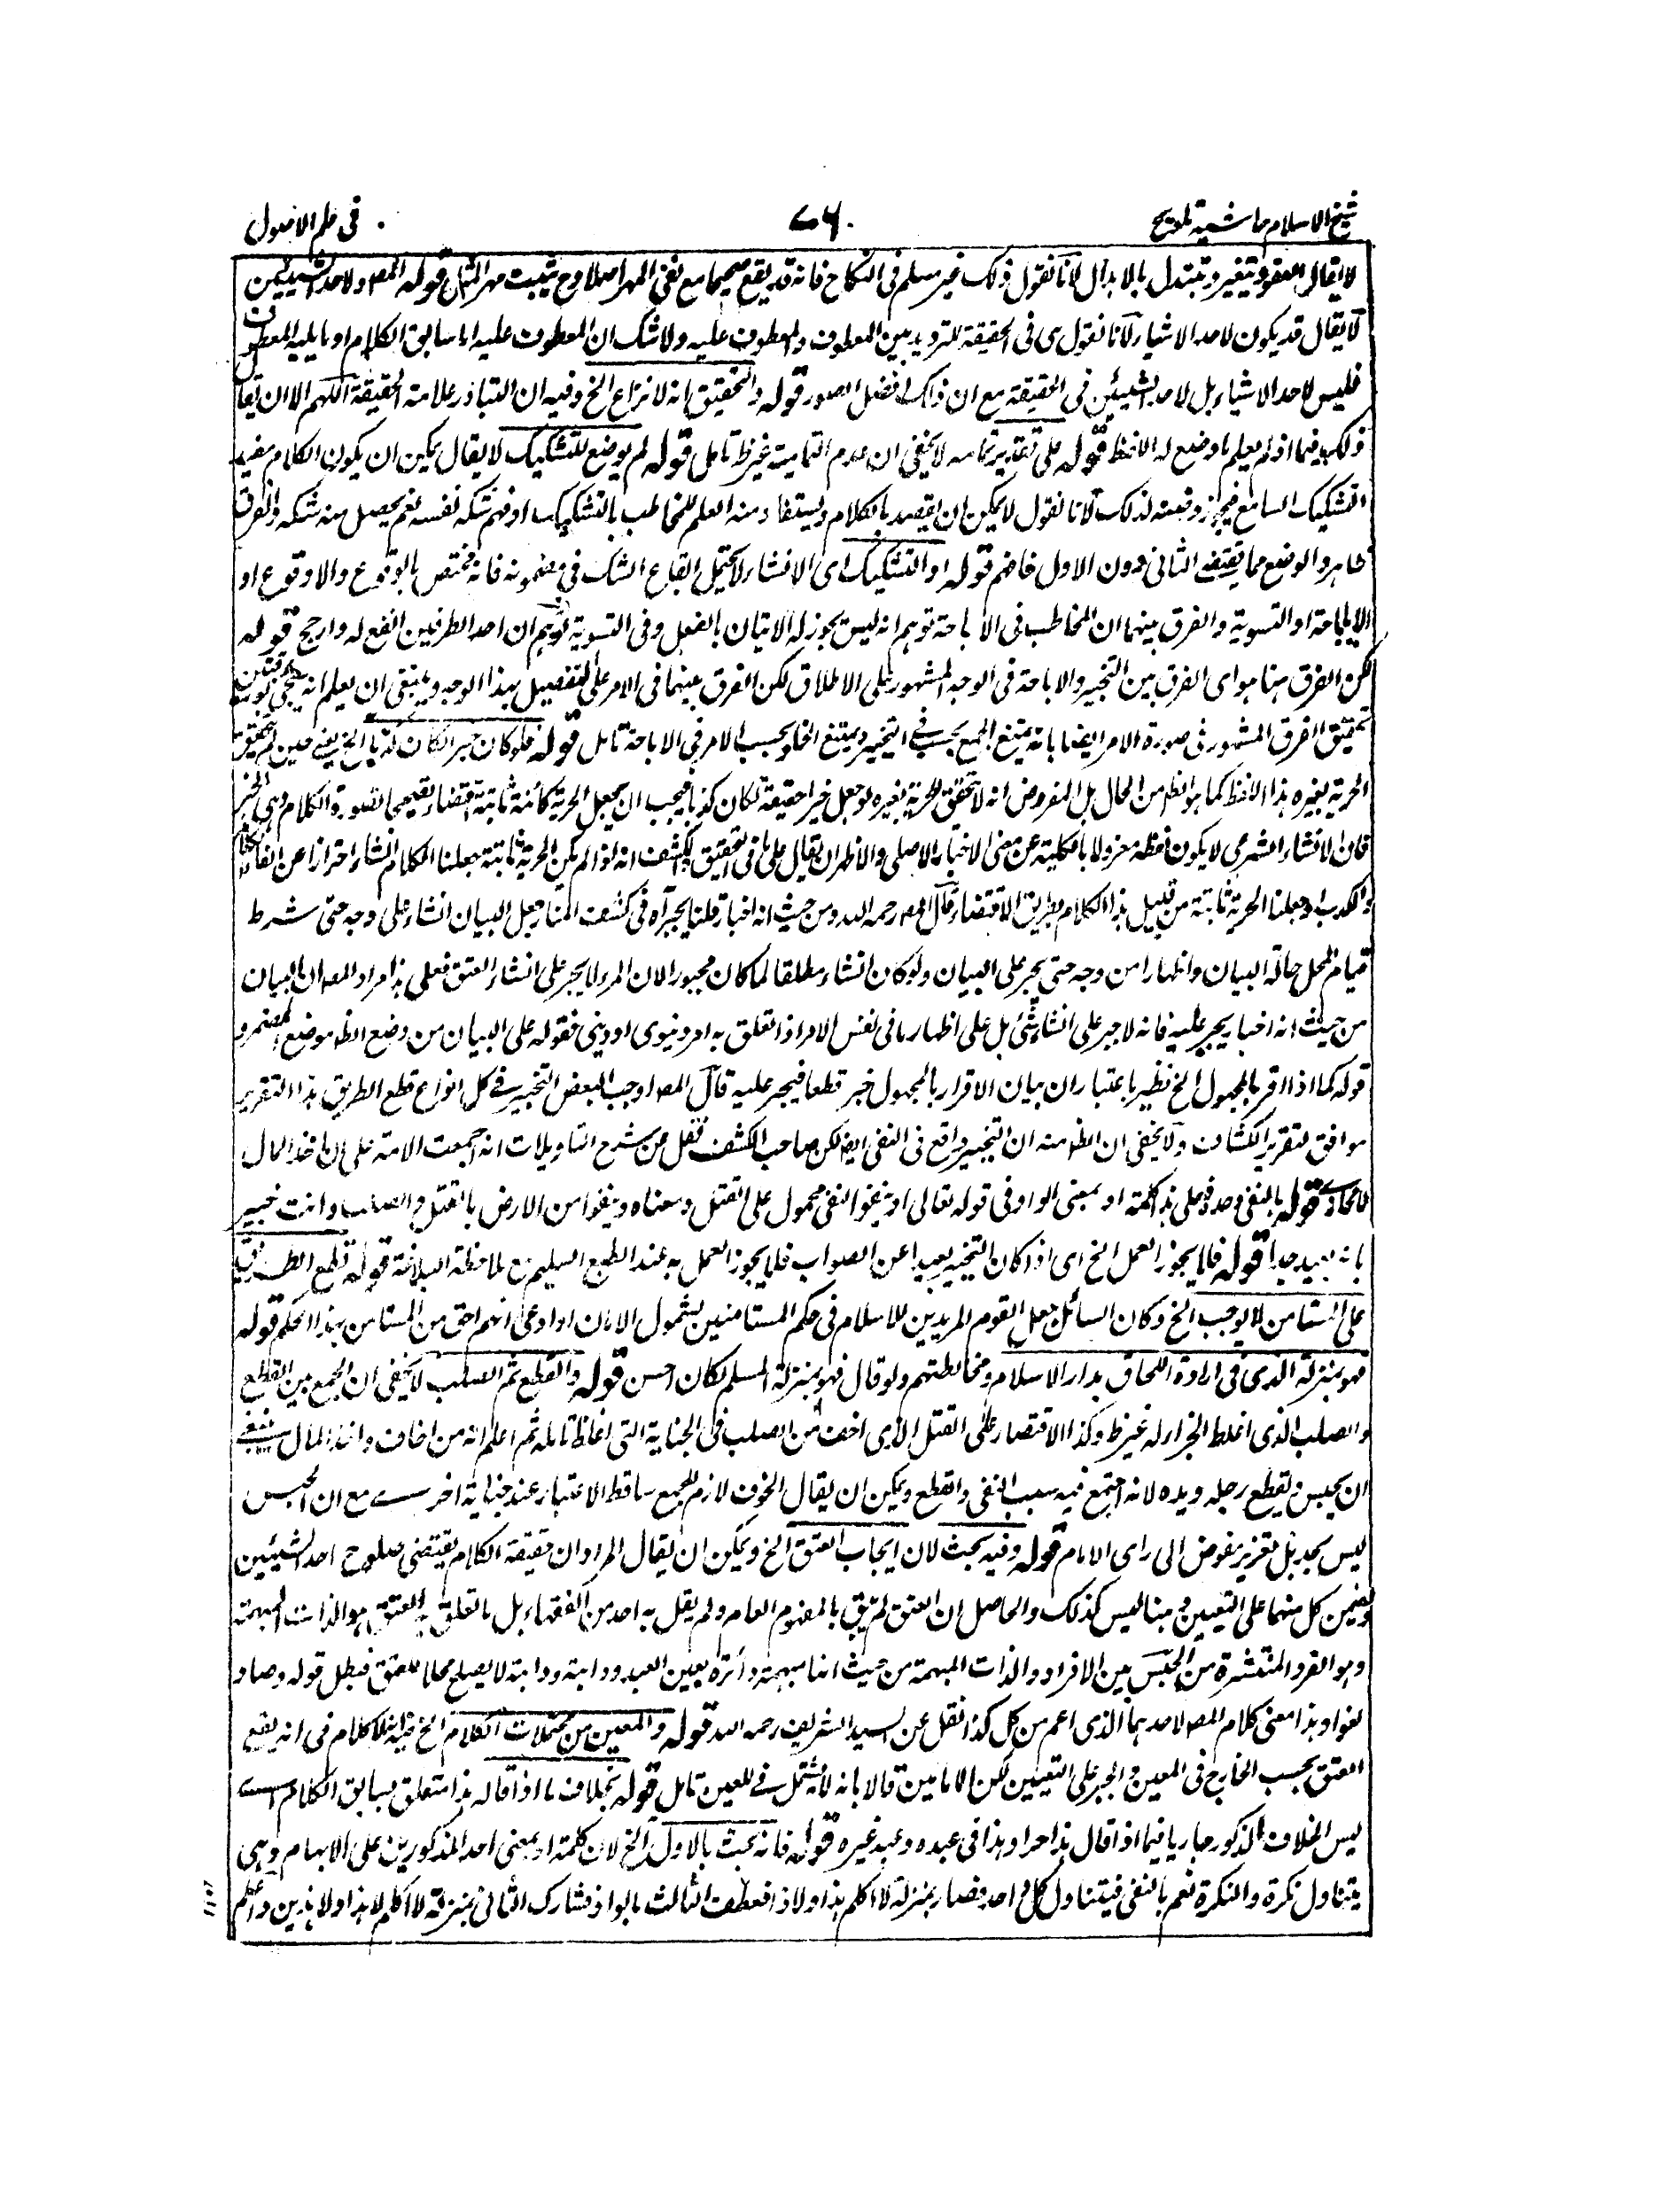 شيخ الاسلام حاشية تلويح
٧٦
فى علم الاصول
لا يقال العقود يتغير وتتبدل بالابدال لانا نقول ذلك غير مسلم فى النكاح فانه قد يقع صحيحا مع نفى المهر اصلا وح يثبت مهر المثل قوله المص ولاحد الشيئين
لا يقال قد يكون لاحد الاشياء لانا نقول هى فى الحقيقة للترديد بين المعطوف والمعطوف عليه ولا شك ان المعطوف عليه اما سابق الكلام او ما يليه المعطوف
فليس لاحد الاشياء بل لاحد الشيئين فى الحقيقة مع ان ذاك افضل الصور قوله والتحقيق انه لا نزاع الخ وفيه ان التبادر علامة الحقيقة اللهم الا ان يقال
ذلك فيما اذ لم يعلم ما وضع له اللفظ قوله على تقدير تمامه لا يخفى ان عدم التمامية غير ظ تامل قوله لم يوضع للتشكيك لا يقال يمكن ان يكون الكلام مفيد
التشكيك السامع فيجوز وضعه لذلك لانا نقول لا يمكن ان يقصد بالكلام ويستفاد منه العلم للمخاطب بالتشكيك او فهم شكه نفسه نعم يحصل منه شكه والفرق
ظاهر والوضع مما يقتضى الثانى دون الاول فافهم قوله او التشكيك اى الانشاء لا يحتمل ايقاع الشك فى مضمونه فانه مختص بالوقوع واللاوقوع او
الاباحة او التسوية والفرق بينهما ان المخاطب فى الاباحة توهم انه ليس يجوز له الاتيان بالفعل وفى التسوية توهم ان احد الطرفين انفع له وارجح قوله
لكن الفرق هنا هو اى الفرق بين التخيير والاباحة فى الوجه المشهور على الاطلاق لكن الفرق بينهما فى الامر على التفصيل بهذا الوجه وينبغى ان يعلم انه يجئ
تحقيق الفرق المشهور فى صورة الامر ايضا بانه يمتنع الجمع بحسب فى التخيير ويمتنع الخلو بحسب الامر فى الاباحة تامل قوله فلو كان خبرا لكان كذبا الخ يعنى حين لم يتحقق
الحرية بغيره هذا اللفظ كما هو الظ من الحال بل المفروض انه لا تحقق الحرية بغيره لو جعل خبرا حقيقة لكان كذبا فيجب ان يجعل الحرية كائنة ثابتة اقتضاء تصحيحا لضرورة الكلام وهى الخبر
فان الانشاء الشرعى لا يكون لفظه معزولا بالكلية عن معنى الاخبار الاصلى والاظهر ان يقال على ما فى التحقيق الكشف انه لو لم يكن الحرية ثابتة جعلنا الكلام انشاء احترازا عن الغاء
والكذب او جعلنا الحرية ثابتة من قبيل هذا الكلام بطريق الاقتضاء قال المص رحمه الله ومن حيث انه اخبار قلنا يجبر آه فى كشف المنار جعل البيان انشاء على وجه حتى شرط
قيام المحل حالة البيان واظهارا من وجه حتى يجبر على البيان ولو كان انشاء مطلقا لما كان مجبورا لان المرء لا يجبر على انشاء العتق فعلى هذا مراد المص ان البيان
من حيث انه اخبار يجبر عليه فانه لا جبر على انشاء شئ بل على اظهار ما فى نفس الامر اذا تعلق به امر دنيوى او دينى فقوله على البيان من وضع الظ موضع المضمر و
قوله كما اذا اقر بالمجهول الخ نظير باعتبار ان بيان الاقرار بالمجهول خبر قطعا فيجبر عليه قال المص اوجب البعض التخيير فى كل انواع قطع الطريق هذا التقرير
موافق لتقرير الكشاف ولا يخفى ان الظ منه ان التخيير واقع فى النفى ايض لكن صاحب الكشف نقل من شرح التاويلات انه اجمعت الامة على ان اخذ المال
قوله بالنفى وحده وعلى هذا كلمة او بمعنى الواو فى قوله تعالى او ينفوا النفى محمول على القتل ومعناه وينفوا من الارض بالقتل والصلب وانت خبير
بانه بعيد جدا قوله فلا يجوز العمل الخ اى اذ كان التخيير بعيدا عن الصواب فلا يجوز العمل به عند الطبع السليم مع ملاحظة البلاغة قوله قطع الطريق
على المستامن لا يوجب الخ وكان السائل جعل القوم المريدين للاسلام فى حكم المستامنين بشمول الامان او ادعى انهم احق من المستامن بهذا الحكم قوله
فهو بمنزلة الذمى فى ارادة اللحاق بدار الاسلام ومخالطتهم ولو قال فهو بمنزلة المسلم لكان احسن قوله والقطع ثم الصلب لا يخفى ان الجمع بين القطع
والصلب الذى اغلظ الجزاء له غير ظ وكذا الاقتصار على القتل الذى اخف من الصلب فى الجناية التى اغلظ تامله ثم اعلم انه من اخاف واخذ المال ينبغى
ان يحبس ويقطع رجله ويده لانه اجتمع فيه سبب النفى والقطع ويمكن ان يقال الخوف لازم للجمع ساقط الاعتبار عند جناية اخرى مع ان الحبس
ليس بحد بل تعزير مفوض الى راى الامام قوله وفيه بحث لان ايجاب العتق الخ ويمكن ان يقال المراد ان حقيقة الكلام يقتضى صلوح احد الشيئين
كل منهما على التعيين وهنا ليس كذلك والحاصل ان العتق لم يتعلق بالمفهوم العام ولم يقل به احد من الفقهاء بل ما تعلق به العتق هو الذات المبهمة
وهو الفرد المنتشرة من الجنس بين الافراد والذات المبهمة من حيث انها مبهمة دائرة بعين العبد ودابة ودابة لا يصلح محلا للعتق فبطل قوله وصار
لغوا وهذا معنى كلام المص لاحدهما الذى اعم من كل كذا نقل عن السيد الشريف رحمه الله قوله والمعين من محتملات الكلام الخ فيه انه لا كلام فى انه يقع
العتق بحسب الخارج فى المعين والجبر على التعيين لكن الامامين قالا بانه لا يشتمل فى المعين تامل قوله بخلاف ما اذا قاله هذا متعلق بسابق الكلام اى
ليس الخلاف المذكور جاريا فيما اذا قال هذا حر او هذا فى عبده وعبد غيره قوله فانه يحنث بالاول الخ لان كلمة او بمعنى احد المذكورين على الابهام وهى
يتناول نكرة والنكرة تعم بالنفى فيتناول كل واحد فصار بمنزلة لا اكلم هذا ولا ذا فعطف الثالث بالواو فشارك الثانى بمنزلة لا اكلم لا هذا ولا هذين واعلم